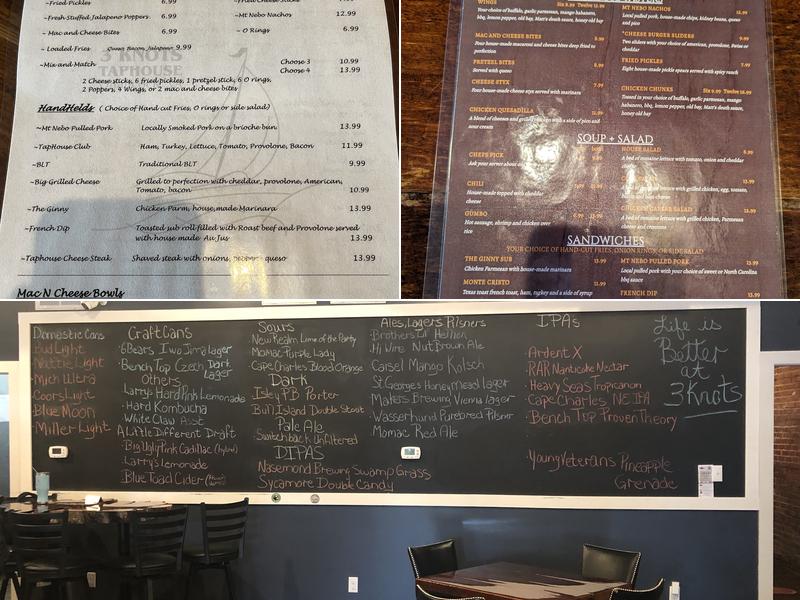 ~Fried Pickles 6.99
~Fresh Stuffed Jalapeno Poppers 6.99
~Mac and Cheese Bites 6.99
~ Loaded Fries Queso Bacon Jalapeno 9.99
~Mt Nebo Nachos 12.99
~ O Rings 6.99
3 KNOTS
TAPHOUSE
~Mix and Match Choose 3 10.99
Choose 4 13.99
2 Cheese sticks, 6 fried pickles, 1 pretzel stick, 6 O rings,
2 Poppers, 4 Wings, or 2 mac and cheese bites
HandHelds ( Choice of Hand cut Fries, O rings or side salad)
~Mt Nebo Pulled Pork Locally Smoked Pork on a brioche bun 13.99
~TapHouse Club Ham, Turkey, Lettuce, Tomato, Provolone, Bacon 11.99
~BLT Traditional BLT 9.99
~Big Grilled Cheese Grilled to perfection with cheddar, provolone, American,
Tomato, bacon 10.99
~The Ginny Chicken Parm, house made Marinara 13.99
~French Dip Toasted sub roll filled with Roast beef and Provolone served
with house made Au Jus 13.99
~Taphouse Cheese Steak Shaved steak with onions, peppers queso 13.99
Mac N Cheese Bowls
WINGS Six 8.99 Twelve
Your choice of buffalo, garlic parmesan, mango habanero,
bbq, lemon pepper, old bay, Matt's death sauce, honey old bay
MAC AND CHEESE BITES 8.99
Four house-made macaroni and cheese bites deep fried to
perfection
PRETZEL BITES
Served with queso 8.99
CHEESE STYX
Four house-made cheese styx served with marinara
CHICKEN QUESADILLA 11.99
A blend of cheeses and grilled chicken with a side of pico and
sour cream
MT NEBO NACHOS 12.99
Local pulled pork, house-made chips, kidney beans, queso
and pico
*CHEESE BURGER SLIDERS 9.99
Two sliders your choice of american, provolone, Swiss or
cheddar
FRIED PICKLES 7.99
Eight house-made pickle spears served with spicy ranch
CHICKEN CHUNKS Six 9.99 Twelve 15.99
Tossed in your choice of buffalo, garlic parmesan, mango
habanero, bbq, lemon pepper, old bay, Matt's death sauce,
honey old bay
SOUP + SALAD
CHEFS PICK
Ask your server about
CHILI
House-made topped with cheddar
cheese
GUMBO
Hot sausage, shrimp and chicken over
rice
HOUSE SALAD 8.99
A bed of romaine lettuce with tomato, onion and cheddar
lettuce with grilled chicken, egg, tomato,
CHICKEN CAESAR SALAD 13.99
A bed of romaine lettuce with grilled chicken, Parmesan
cheese and croutons
SANDWICHES
YOUR CHOICE OF HAND-CUT FRIES, ONION RINGS, OR SIDE SALAD
THE GINNY SUB 13.99
Chicken Parmesan with house-made marinara
MONTE CRISTO 13.99
Texas toast french toast, ham, turkey and a side of syrup
MT NEBO PULLED PORK 13.99
Local pulled pork with your choice of sweet or North Carolina
bbq sauce
FRENCH DIP 13.99
Domestic Cans
Bud Light
Nattie Light
Mich Ultra
Coors Light
Blue Moon
Miller Light
Craft Cans
6 Bears Iwo Jima lager
Bench Top Czech, Dark
Lager
Others
Larry's Hard Pink Lemonade
Hard Kombucha
White Claw Asst
A Little Different Draft
Big Ugly Pink Cadillac (hybrid)
Larry's Lemonade
Blue Toad Cider
Sours
New Realm Lime of the Party
Momac Purple Lady
Cape Charles Blood Orange
Dark
Isley P.B. Porter
Bull Island Double Stout
Pale Ale
Switchback Unfiltered
DIPAS
Nasemond Brewing Swamp Grass
Sycamore Double Candy
Ales, Lagers Pilsners
Brothers Lil Hellion
Hi Wire Nut Brown Ale
Caiseal Mango Kolsch
St Georges Honey Mead lager
Makers Brewing Vienna lager
Wasserhund Purebred Pilsner
Momac Red Ale
IPAs
Ardent X
RAR Nanticoke Nectar
Heavy Seas Tropicannon
Cape Charles NEIPA
Bench Top Proven Theory
Young Veterans Pineapple
Grenade
Life is
Better
at
3 Knots